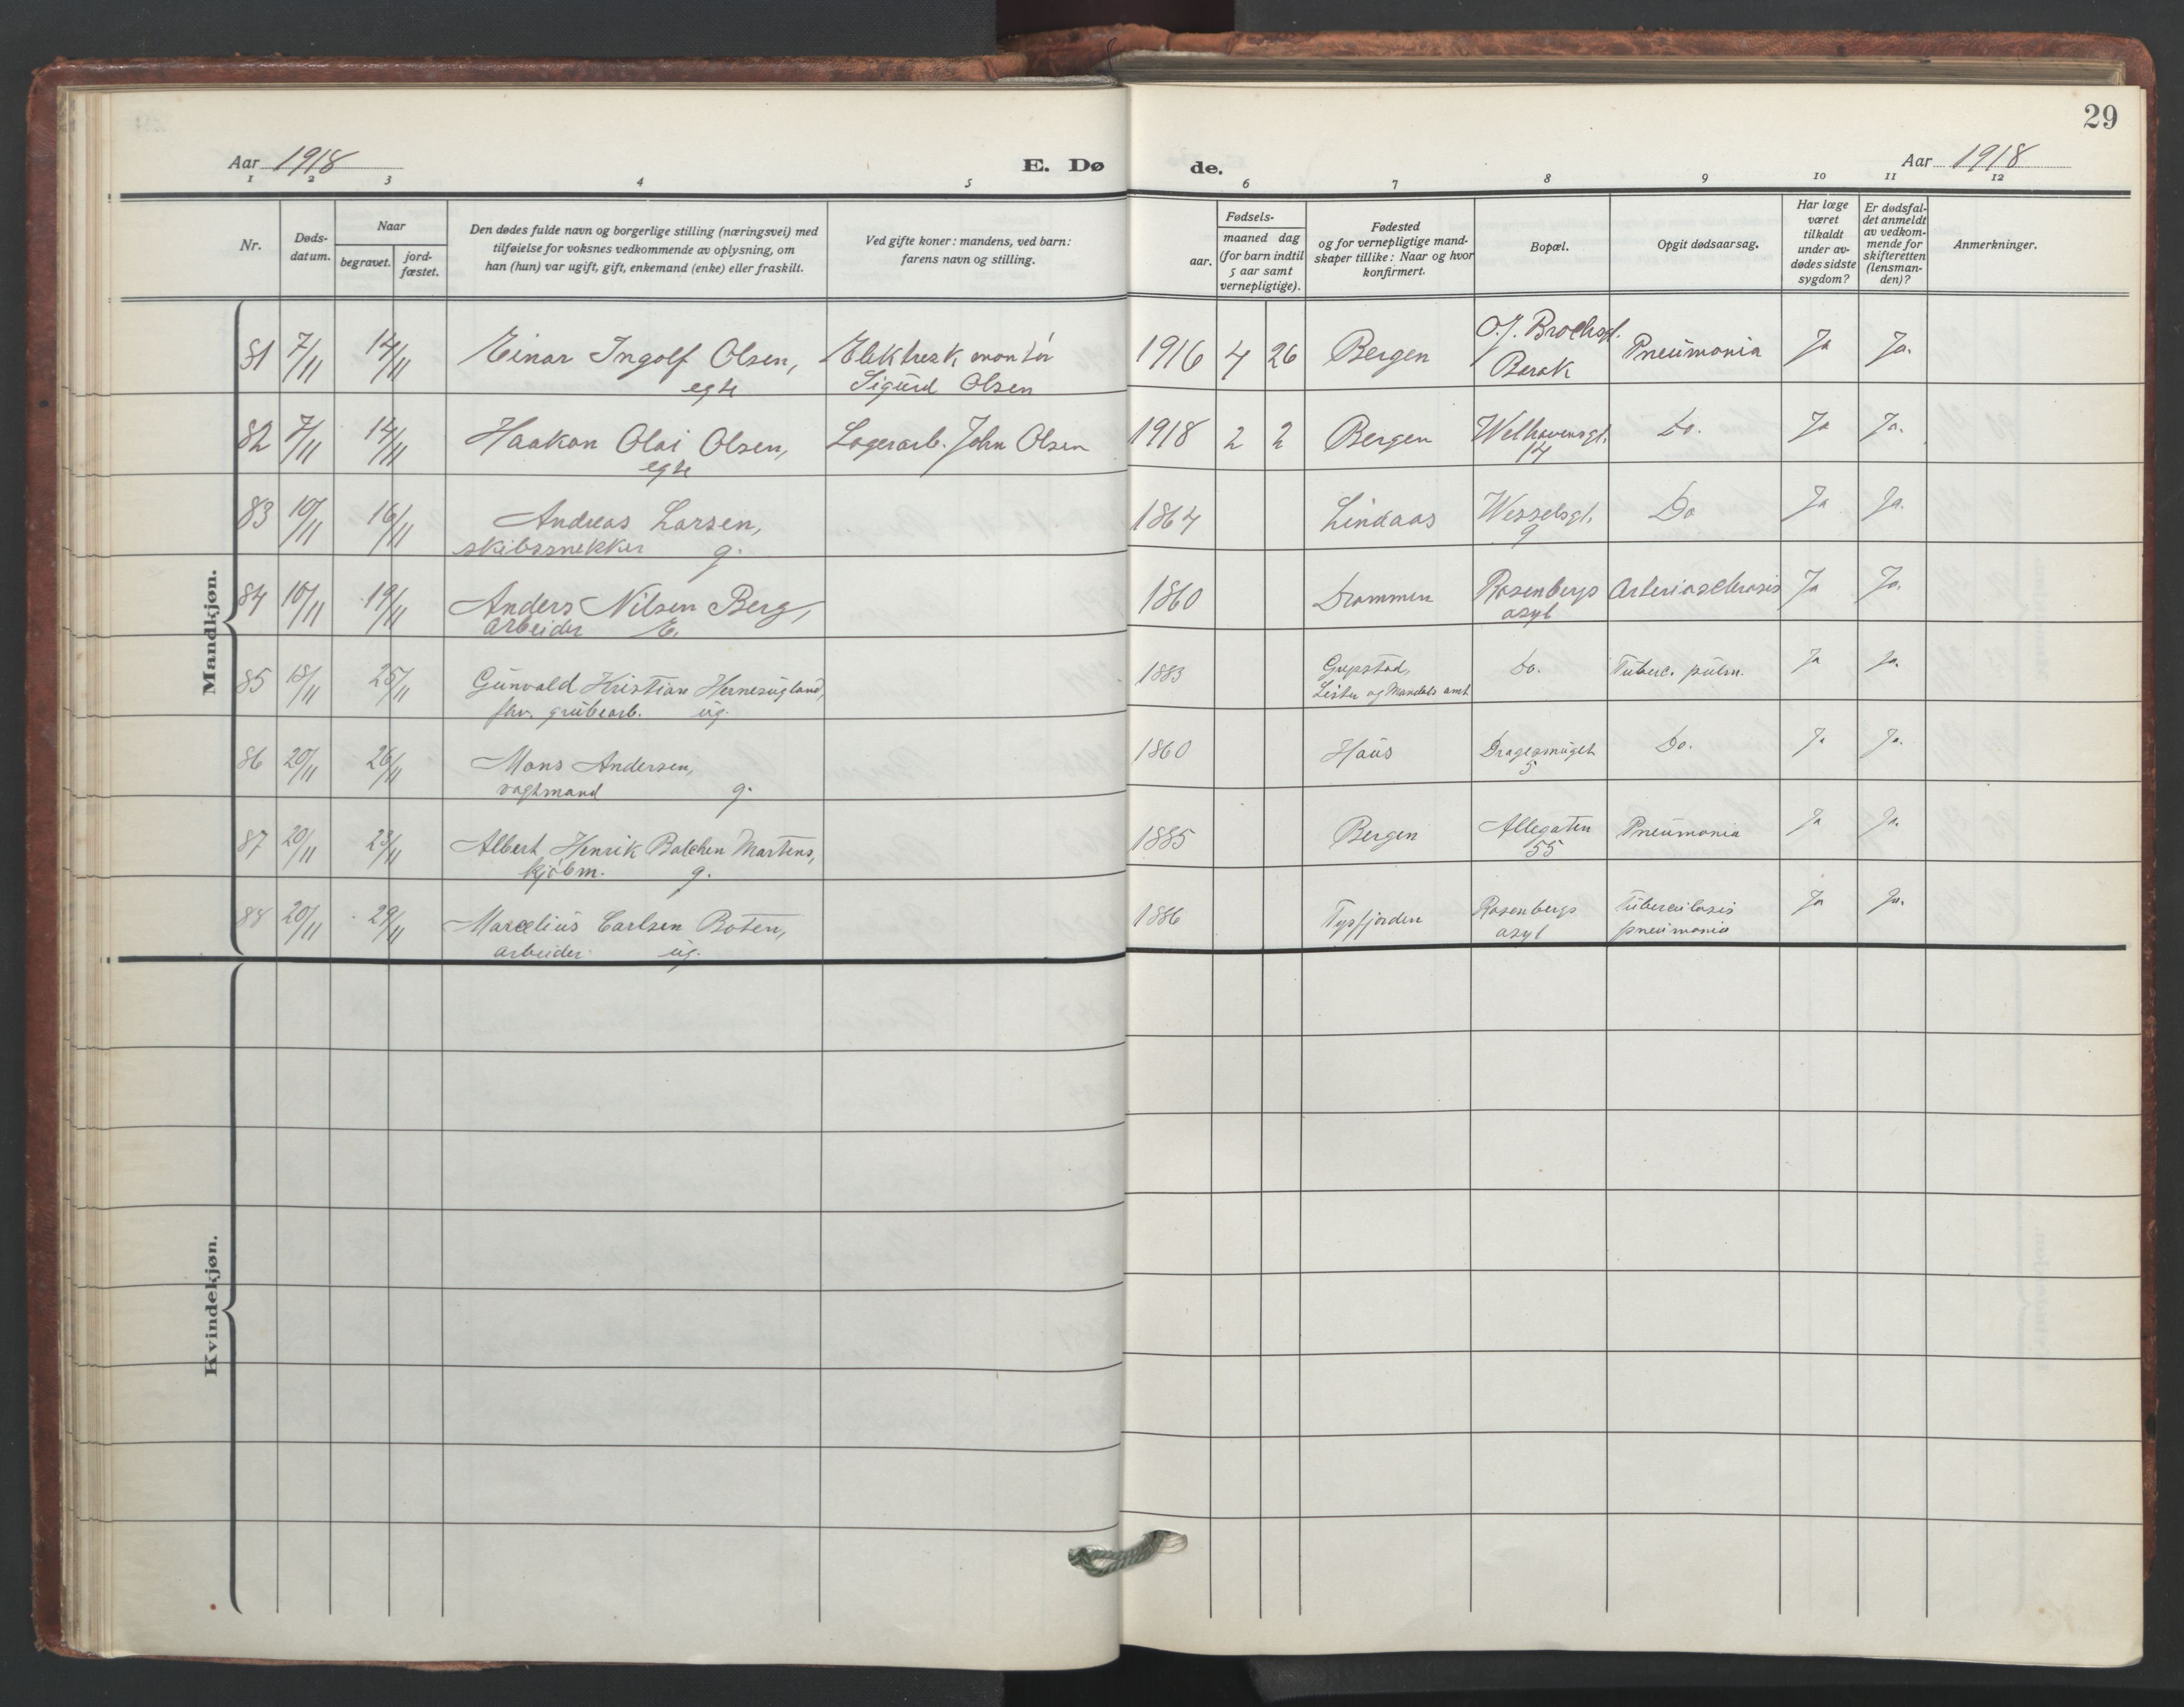 29
Aar 1918 E. Dø de. Aar 1918
1 2 3 4 5 6 7 8 9 10 11 12
Nr.
Døds-
datum.
Naar
begravet.
jord-
fæstet.
Den dødes fulde navn og borgerlige stilling (næringsvei) med
tilføielse for voksnes vedkommende av oplysning, om
han (hun) var ugift, gift, enkemand (enke) eller fraskilt.
Ved gifte koner: mandens, ved barn:
farens navn og stilling.
Fødsels-
aar.
maaned dag
(for barn indtil
5 aar samt
vernepligtige).
Fødested
og for vernepligtige mand-
skaper tillike: Naar og hvor
konfirmert.
Bopæl.
Opgit dødsaarsag.
Har læge
været
tilkaldt
under av-
dødes sidste
sygdom?
Er dødsfal-
det anmeldt
av vedkom-
mende for
skifteretten
(lensman-
den)?
Anmerkninger.
Mandkjøn.
81 7/11 14/11 Einar Ingolf Olsen, Elektresk montør 1916 4 26 Bergen O.J. Brochsgt. Pneumonia Ja Ja.
egte Sigurd Olsen Barak
82 7/11 14/11 Haakon Olai Olsen, Lagerarb. John Olsen 1918 2 2 Bergen Welhavensgt. Do. Ja Ja.
egte 14
83 10/11 16/11 Andreas Larsen, 1864 Lindaas Wesselsgt. Do Ja Ja.
skibssnekker g. 9
84 10/11 19/11 Anders Nilsen Berg, 1860 Drammen Rosenbergs Arteriosclerosis Ja Ja.
arbeider E. asyl
85 18/11 25/11 Gunvald Kristian 1883 Do. Tuberc. pulm. Ja Ja.
fhv. grubearb. ug. Lister og Mandals amt
86 20/11 26/11 Mons Andersen, 1860 Haus Dragesmuget Do. Ja Ja.
vagtmand g. 5
87 20/11 23/11 Albert Henrik Balchen Martens, 1885 Bergen Allegaten Pneumonia Ja Ja.
kjøbm. g. 55
88 20/11 29/11 Marcelius Carlsen Boten, 1886 Tysfjorden Rosenbergs Tuberculosis Ja Ja.
arbeider ug. asyl pneumonia
Kvindekjøn.